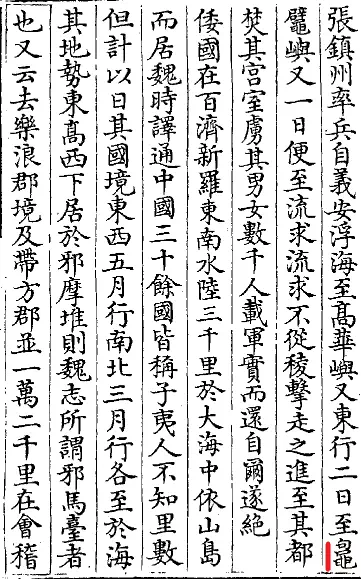 張鎮州率兵自義安浮海至高華嶼又東行二日至𪓟
鼊嶼又一日便至流求流求不從稜擊走之進至其都
焚其宫室虜其男女數千人載軍實而還自爾遂絕
倭國在百濟新羅東南水陸三千里於大海中依山島
而居魏時譯通中國三十餘國皆稱子夷人不知里數
但計以日其國境東西五月行南北三月行各至於海
其地勢東高西下居於邪摩堆則魏志所謂邪馬臺者
也又云去樂浪郡境及帶方郡並一萬二千里在會稽